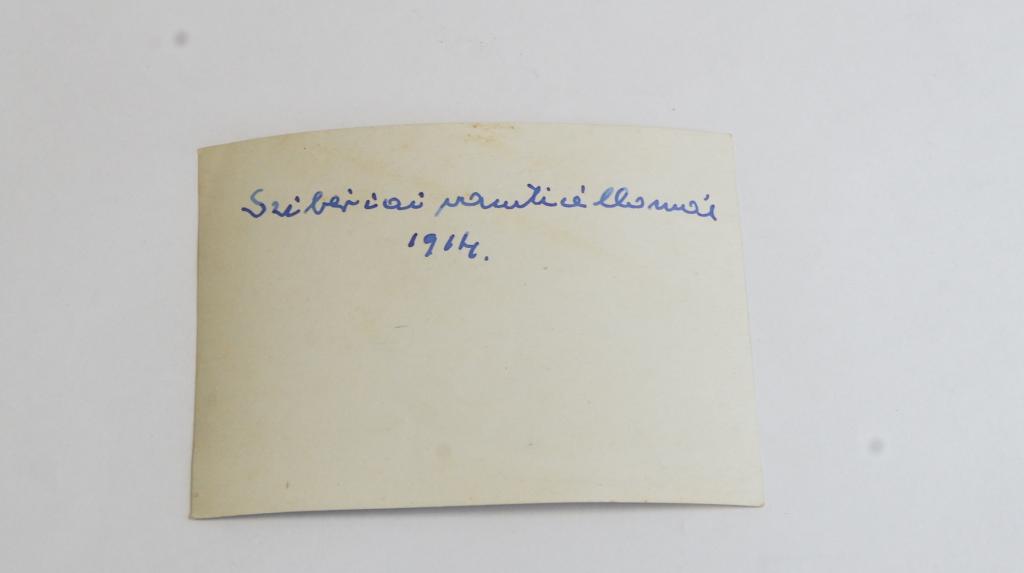 Szibériai vasútiállomás
1914.